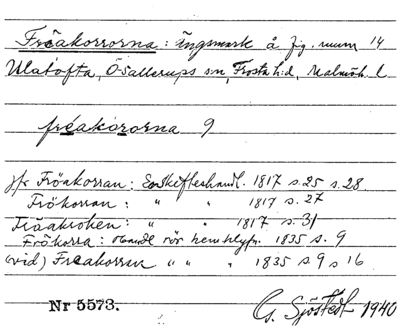 Fröakorrorna: ängsmark å fig. num 14
Ulatofta, Ö Sallerups sn, Frosta hd, Malmöh. l
freakororna 9
jfr Fröakorran: Enskifteshandl. 1817 s. 25 s. 28.
Frökorran: " " 1817 s. 27
Fröakroken: " " 1817 s. 31
Frökorra: Handl rör hemklyfn. 1835 s. 9
(vid) Freakorran " " " 1835 s 9 s 16
Nr 5573. G. Sjöstedt 1940